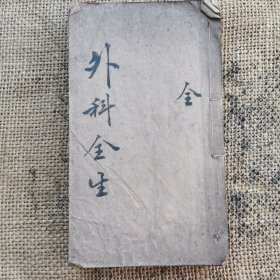 全
外科全生